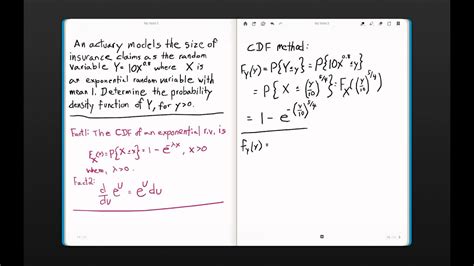 An actuary models the size of
insurance claims as the random
variable Y = 10X^0.8 where X is
an exponential random variable with
mean 1. Determine the probability
density function of Y, for y>0.
Fact1: The CDF of an exponential r.v. is
F_X(x) = P{X ≤ x} = 1 - e^{-λx}, x>0
where, λ>0.
Fact2:
d/du e^u = e^u du
CDF method:
F_Y(y) = P{Y ≤ y} = P{10X^0.8 ≤ y}
= P{X ≤ (y/10)^{5/4}} = F_X((y/10)^{5/4})
= 1 - e^{-(y/10)^{5/4}}
f_Y(y) =